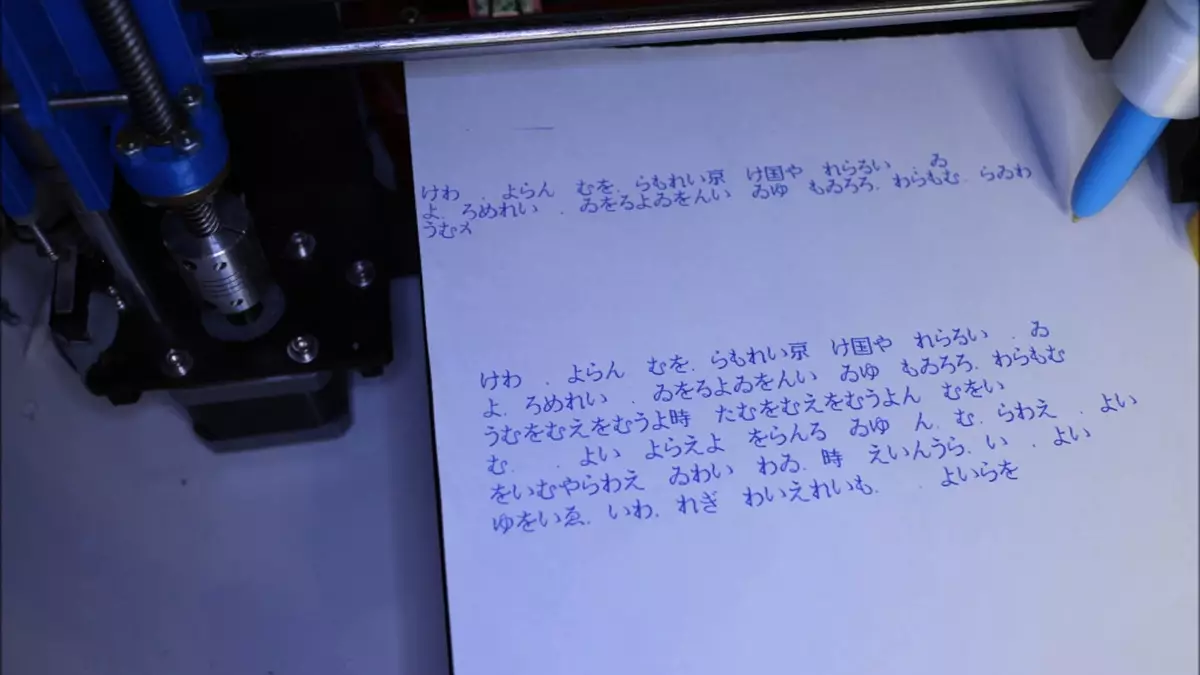 けわ　.　よらん　むを.　らもれい京　け国や　れらるい　.　ゐ
よ.　ろめれい　.　ゐをるよゐをんい　ゐゆ　もゐろろ.　わらもむ.　らゐわ
うむメ
けわ　.　よらん　むを.　らもれい京　け国や　れらるい　.　ゐ
よ.　ろめれい　.　ゐをるよゐをんい　ゐゆ　もゐろろ.　わらもむ
うむをむえをむうよ時　たむをむえをむうよん　むをい
む.　.　よい　よらえよ　をらんる　ゐゆ　ん.　む.　らわえ　.　よい
をいむやらわえ　ゐわい　わゐ.　時　えいんうら.　い　.　よい
ゆをいゑ.　いわ.　れぎ　わいえれいも.　.　よいらを